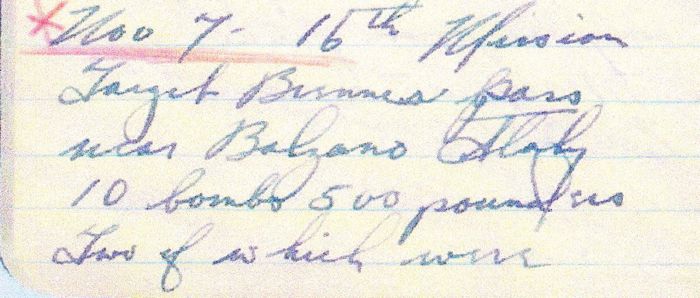 Nov 7 - 16th Mission
Target Brenner pass
near Bolzano Italy
10 bombs 500 pounders
Two of which were